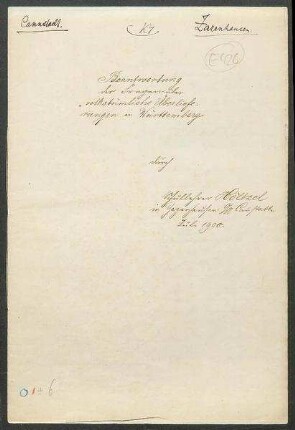 Cannstadt. (K7) Zazenhausen
Beantwortung
der Fragen über
volkstümliche Überliefe-
rungen in Württemberg
durch
Schullehrer Hötzel
in Zazenhausen O/A Cannstatt
Juli 1900.